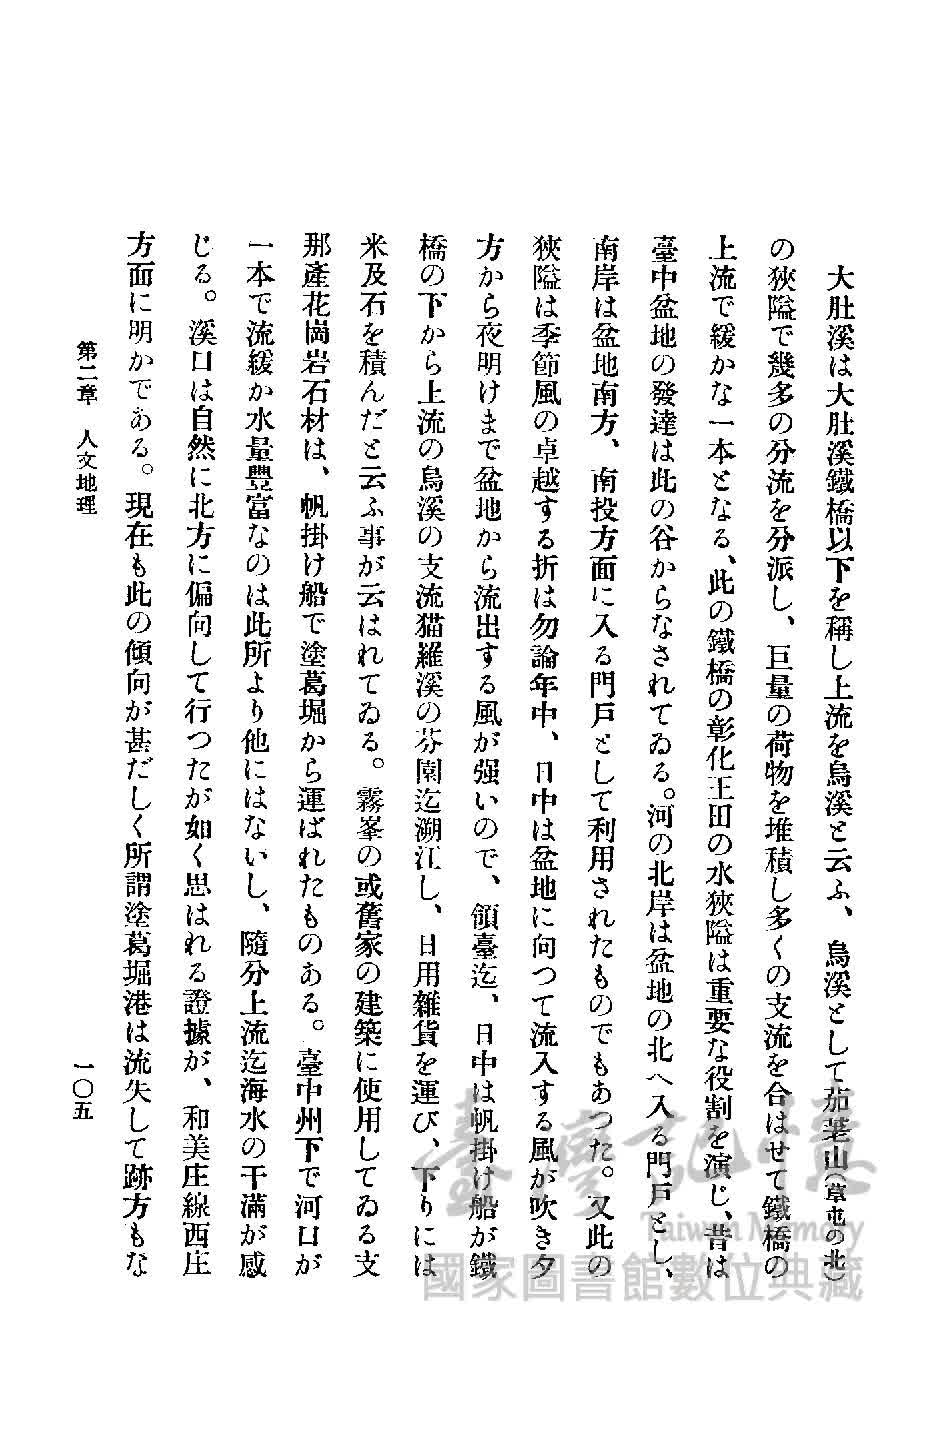 大肚溪は大肚溪鐵橋以下を稱し上流を烏溪と云ふ、烏溪として茄荖山(草屯の北)
の狹隘で幾多の分流を分派し、巨量の荷物を堆積し多くの支流を合はせて鐵橋の
上流で緩かな一本となる、此の鐵橋の彰化王田の水狹隘は重要な役割を演じ、昔は
臺中盆地の發達は此の谷からなされてゐる。河の北岸は盆地の北へ入る門戸とし、
南岸は盆地南方、南投方面に入る門戸として利用されたものでもあつた。又此の
狹隘は季節風の卓越する折は勿論年中、日中は盆地に向つて流入する風が吹き夕
方から夜明けまで盆地から流出する風が强いので、領臺迄、日中は帆掛け船が鐵
橋の下から上流の烏溪の支流猫羅溪の芬園迄溯江し、日用雜貨を運び、下りには
米及石を積んだと云ふ事が云はれてゐる。霧峯の或舊家の建築に使用してゐる支
那產花崗岩石材は、帆掛け船で塗葛堀から運ばれたものある。臺中州下で河口が
一本で流緩か水量豐富なのは此所より他にはないし、隨分上流迄海水の干滿が感
じる。溪口は自然に北方に偏向して行つたが如く思はれる證據が、和美庄線西庄
方面に明かである。現在も此の傾向が甚だしく所謂塗葛堀港は流失して跡方もな
第二章 人文地理
一〇五
臺灣記憶
Taiwan Memory
國家圖書館數位典藏